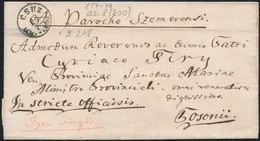 CSUZ
Parocho Szemerensi.
Admodum Reverendo ac Eximio Patri
Cyriaco Piry
Ven. Provinciae Sanctae Mariae
Ministro Provinciali omni veneratione
dignissimo
In stricte officiosis
Posonii